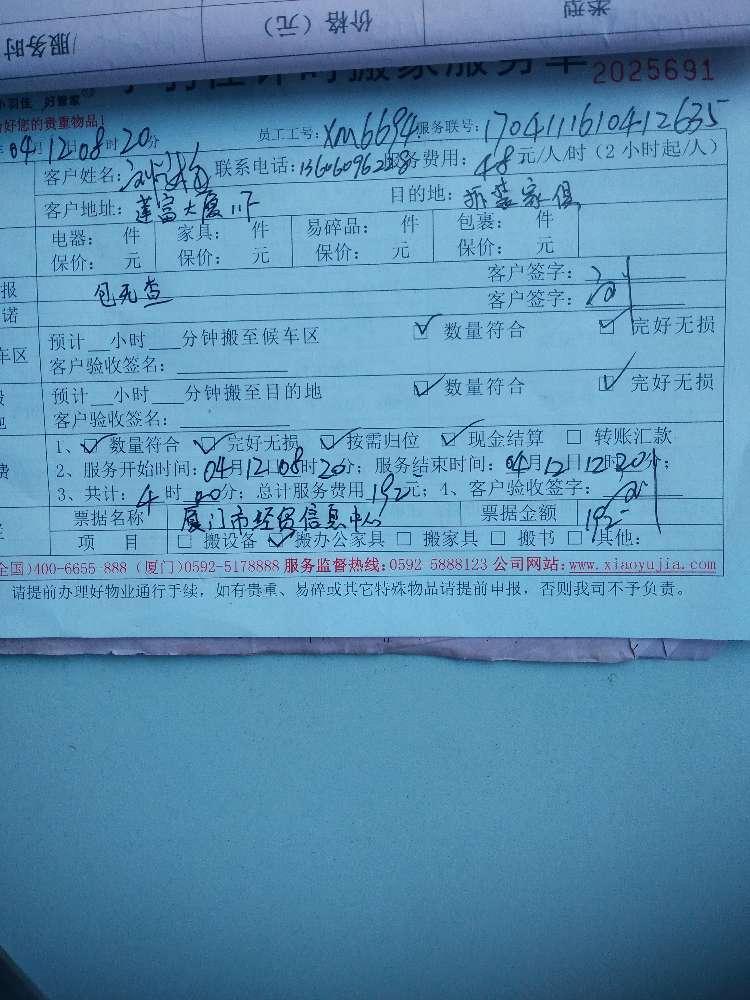 类型 价格（元） 服务时
小羽佳计时搬家服务单 2025691
小羽佳 好管家
好您的贵重物品！
04月12日08时20分 员工工号：XM6694 服务联号：1704111610412635
客户姓名： 联系电话： 服务费用：48元/人/时（2小时起/人）
客户地址：莲富大厦 目的地：拆装家俱
电器： 件 家具： 件 易碎品： 件 包裹： 件
保价： 元 保价： 元 保价： 元 保价： 元
报 客户签字：
诺 包无查 客户签字：
预计__小时___分钟搬至候车区 ☑ 数量符合 ☑ 完好无损
车区 客户验收签名：
预计__小时___分钟搬至目的地 ☑ 数量符合 ☑ 完好无损
客户验收签名：
1、☑ 数量符合 ☑ 完好无损 ☑ 按需归位 ☑ 现金结算 □ 转账汇款
费 2、服务开始时间：04月12日08时20分；服务结束时间：04月12日12时20分；
3、共计：4时00分；总计服务费用192元；4、客户验收签字：
票据名称 厦门市经贸信息中心 票据金额 192-
项 目 □ 搬设备 ☑ 搬办公家具 □ 搬家具 □ 搬书 □ 其他：
全国)400-6655 888 (厦门)0592-5178888 服务监督热线:0592 5888123 公司网站:www.xiaoyujia.com
请提前办理好物业通行手续，如有贵重、易碎或其它特殊物品请提前申报，否则我司不予负责。